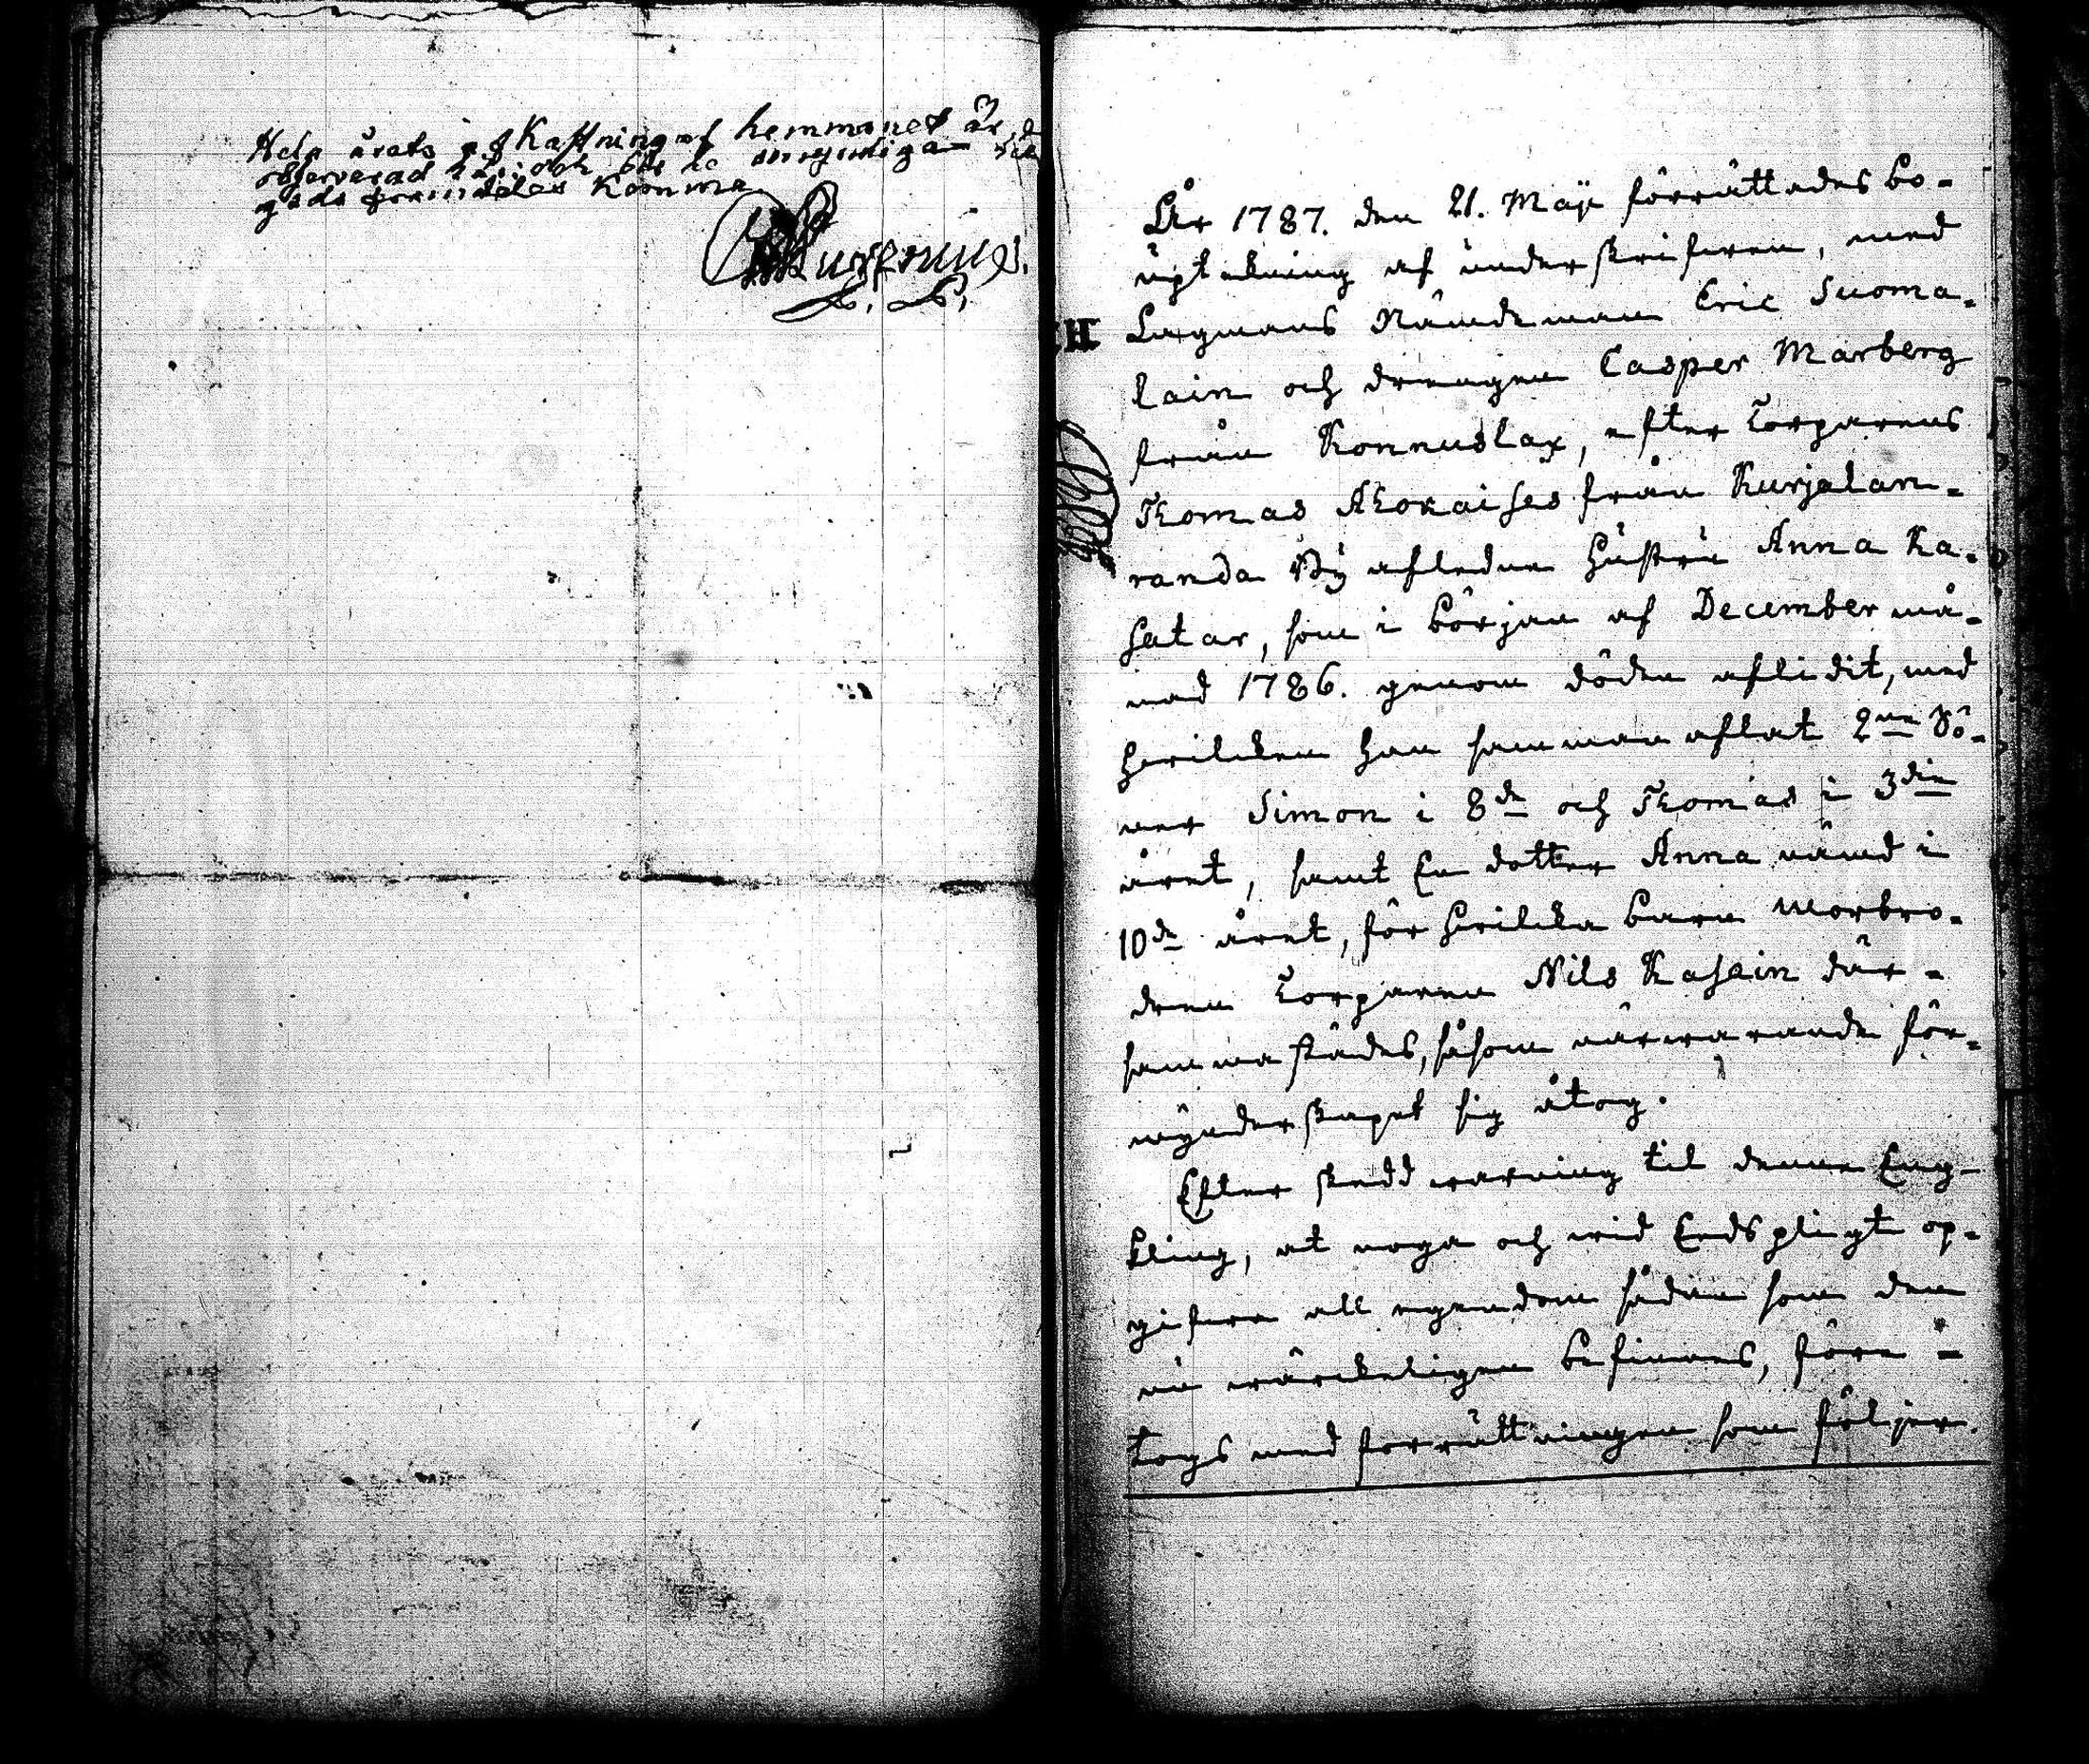 Hela årets afkastning af hemmanet är
observerad
gods framdeles komma
År 1787. den 21. Maji förrättades bo-
upteckning af underskrifvern, med
Lagmans Nämdeman Eric Suoma-
lain och drengen Casper Marberg
från Konnuslax, efter Torparens
Thomas Ahokaises från Kurjalan-
randa By afledne hustru Anna Ka-
hatar, som i början af December må-
nad 1786. genom döden aflidit, med
hvilcken han sammanaflat 2ne Sö-
ner Simon i 8de och Thomas i 3die
året, samt En dotter Anna nämd i
10de året, för hvilcka barn morbro-
dren Torparen Nils Kahain där-
sammastädes, såsom närvarande för-
mynderskapet sig åtog.
Efter skedd varning til denne Eng-
kling, at noga och vid Edsplicgt op-
gifva all egendom sådan som den
nu värckeligen befinnes, före-
togs med förrättningen som följer.